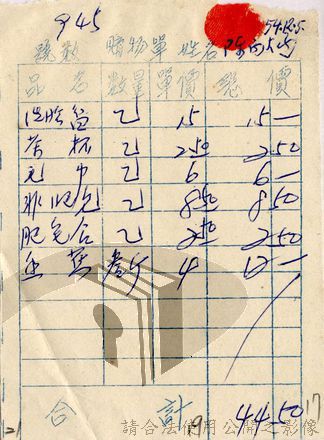 945
號數 購物單 姓名 54.12.5.
品名 數量 單價 總價
洗臉盆 乙 15 15—
茶杯 乙 2.50 2.50
毛巾 乙 6 6—
乙 8.50 8.50
肥皂合 乙 2.50 2.50
叁斤 4 12—
合計 44.50
19
17
21
請合法使用公開之影像